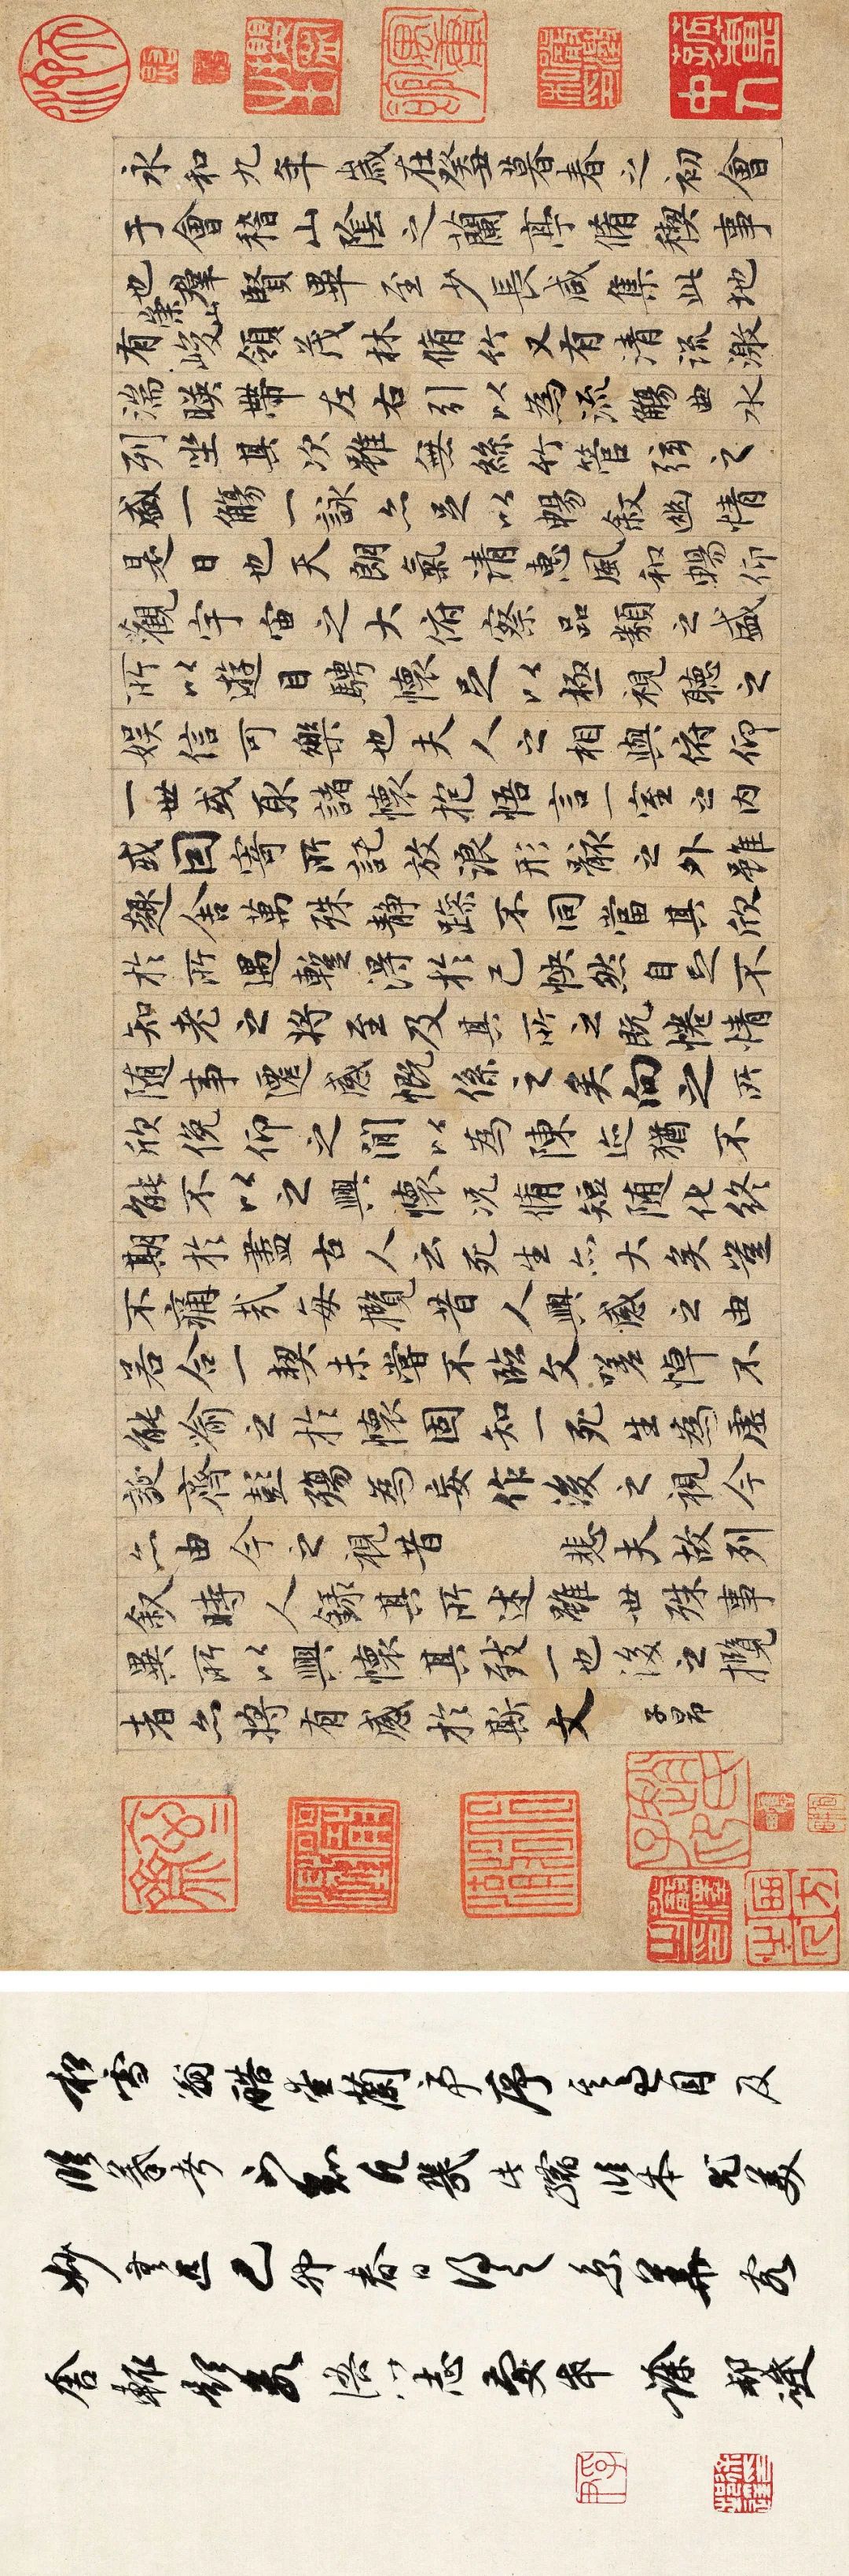 永和九年歲在癸丑暮春之初會
于會稽山陰之蘭亭脩稧事
也群賢畢至少長咸集此地
有崇山峻領茂林脩竹又有清流激
湍暎帶左右引以為流觴曲水
列坐其次雖無絲竹管弦之
盛一觴一詠亦足以暢叙幽情
是日也天朗氣清惠風和暢仰
觀宇宙之大俯察品類之盛
所以遊目騁懷足以極視聽之
娱信可樂也夫人之相與俯仰
一世或取諸懷抱悟言一室之内
或因寄所託放浪形骸之外雖
趣舍萬殊静躁不同當其欣
於所遇暫得於己怏然自足不
知老之将至及其所之既惓情
随事遷感慨係之矣向之所
欣俛仰之間以為陳迹猶不
能不以之興懷况脩短随化終
期於盡古人云死生亦大矣豈
不痛哉每攬昔人興感之由
若合一契未嘗不臨文嗟悼不
能喻之於懷固知一死生為虛
誕齊彭殤為妄作後之視今
亦由今之視昔 悲夫故列
叙時人錄其所述雖世殊事
異所以興懷其致一也後之攬
者亦將有感於斯文 子昂
松雪翁酷蘭亭序自及
臨摹者不知凡幾此縮臨本尤美
妙己卯春日得之京華客
舍輒影志徐邦達